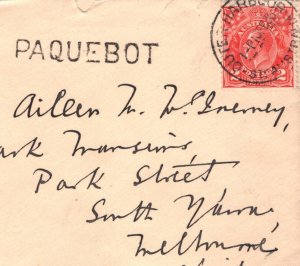 PAQUEBOT
AUSTRALIA
2 2
Aileen M. McInerney,
Park Mansions,
Park Street
South Yarra,
Melbourne